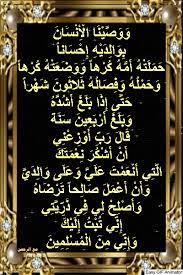 وَوَصَّيْنَا الْأِنْسَانَ
بِوَالِدَيْهِ إِحْسَاناً
حَمَلَتْهُ أُمُّهُ كُرْهاً وَوَضَعَتْهُ كُرْهاً
وَحَمْلُهُ وَفِصَالُهُ ثَلاثُونَ شَهْراً
حَتَّى إِذَا بَلَغَ أَشُدَّهُ
وَبَلَغَ أَرْبَعِينَ سَنَةً
قَالَ رَبِّ أَوْزِعْنِي
أَنْ أَشْكُرَ نِعْمَتَكَ
الَّتِي أَنْعَمْتَ عَلَيَّ وَعَلَى وَالِدَيَّ
وَأَنْ أَعْمَلَ صَالِحاً تَرْضَاهُ
وَأَصْلِحْ لِي فِي ذُرِّيَّتِي
إِنِّي تُبْتُ إِلَيْكَ
وَإِنِّي مِنَ الْمُسْلِمِينَ
Easy GIF Animator